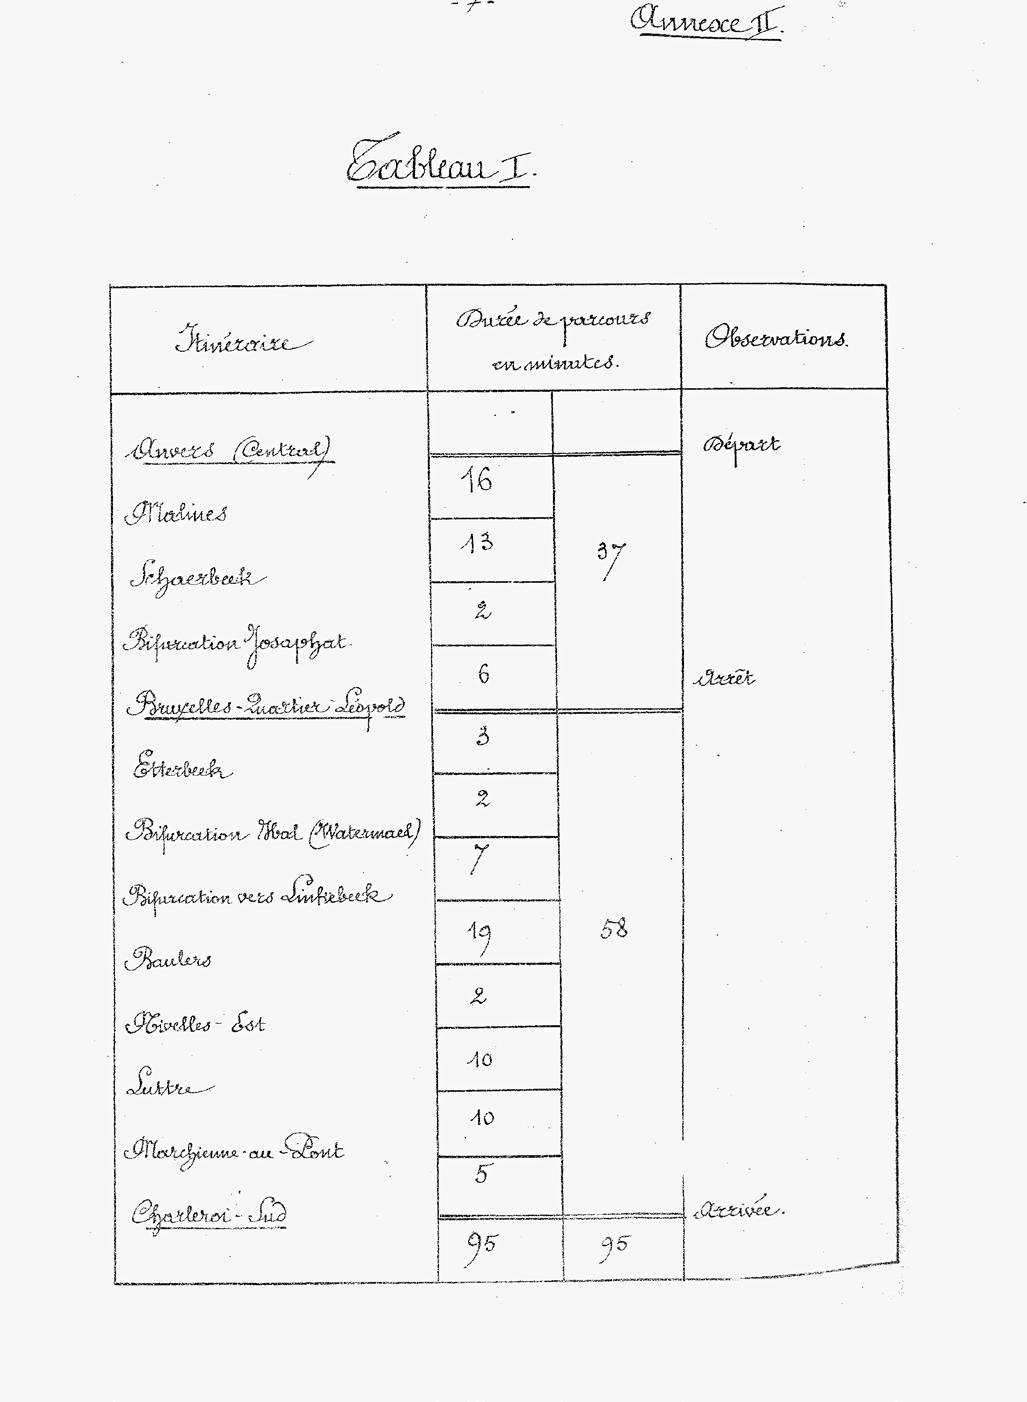 - 7 -
Annexe II.
Tableau I.
Itinéraire
Durée de parcours
en minutes.
Observations.
Anvers (Central)
Départ
16
Malines
13
37
Schaerbeek
2
Bifurcation Josaphat.
6
Arrêt
Bruxelles-Quartier-Léopold
3
Etterbeek
2
Bifurcation Hal (Watermael)
7
Bifurcation vers Linkebeek
19
58
Baulers
2
Nivelles-Est
10
Luttre
10
Marchienne-au-Pont
5
Charleroi-Sud
Arrivée.
95
95